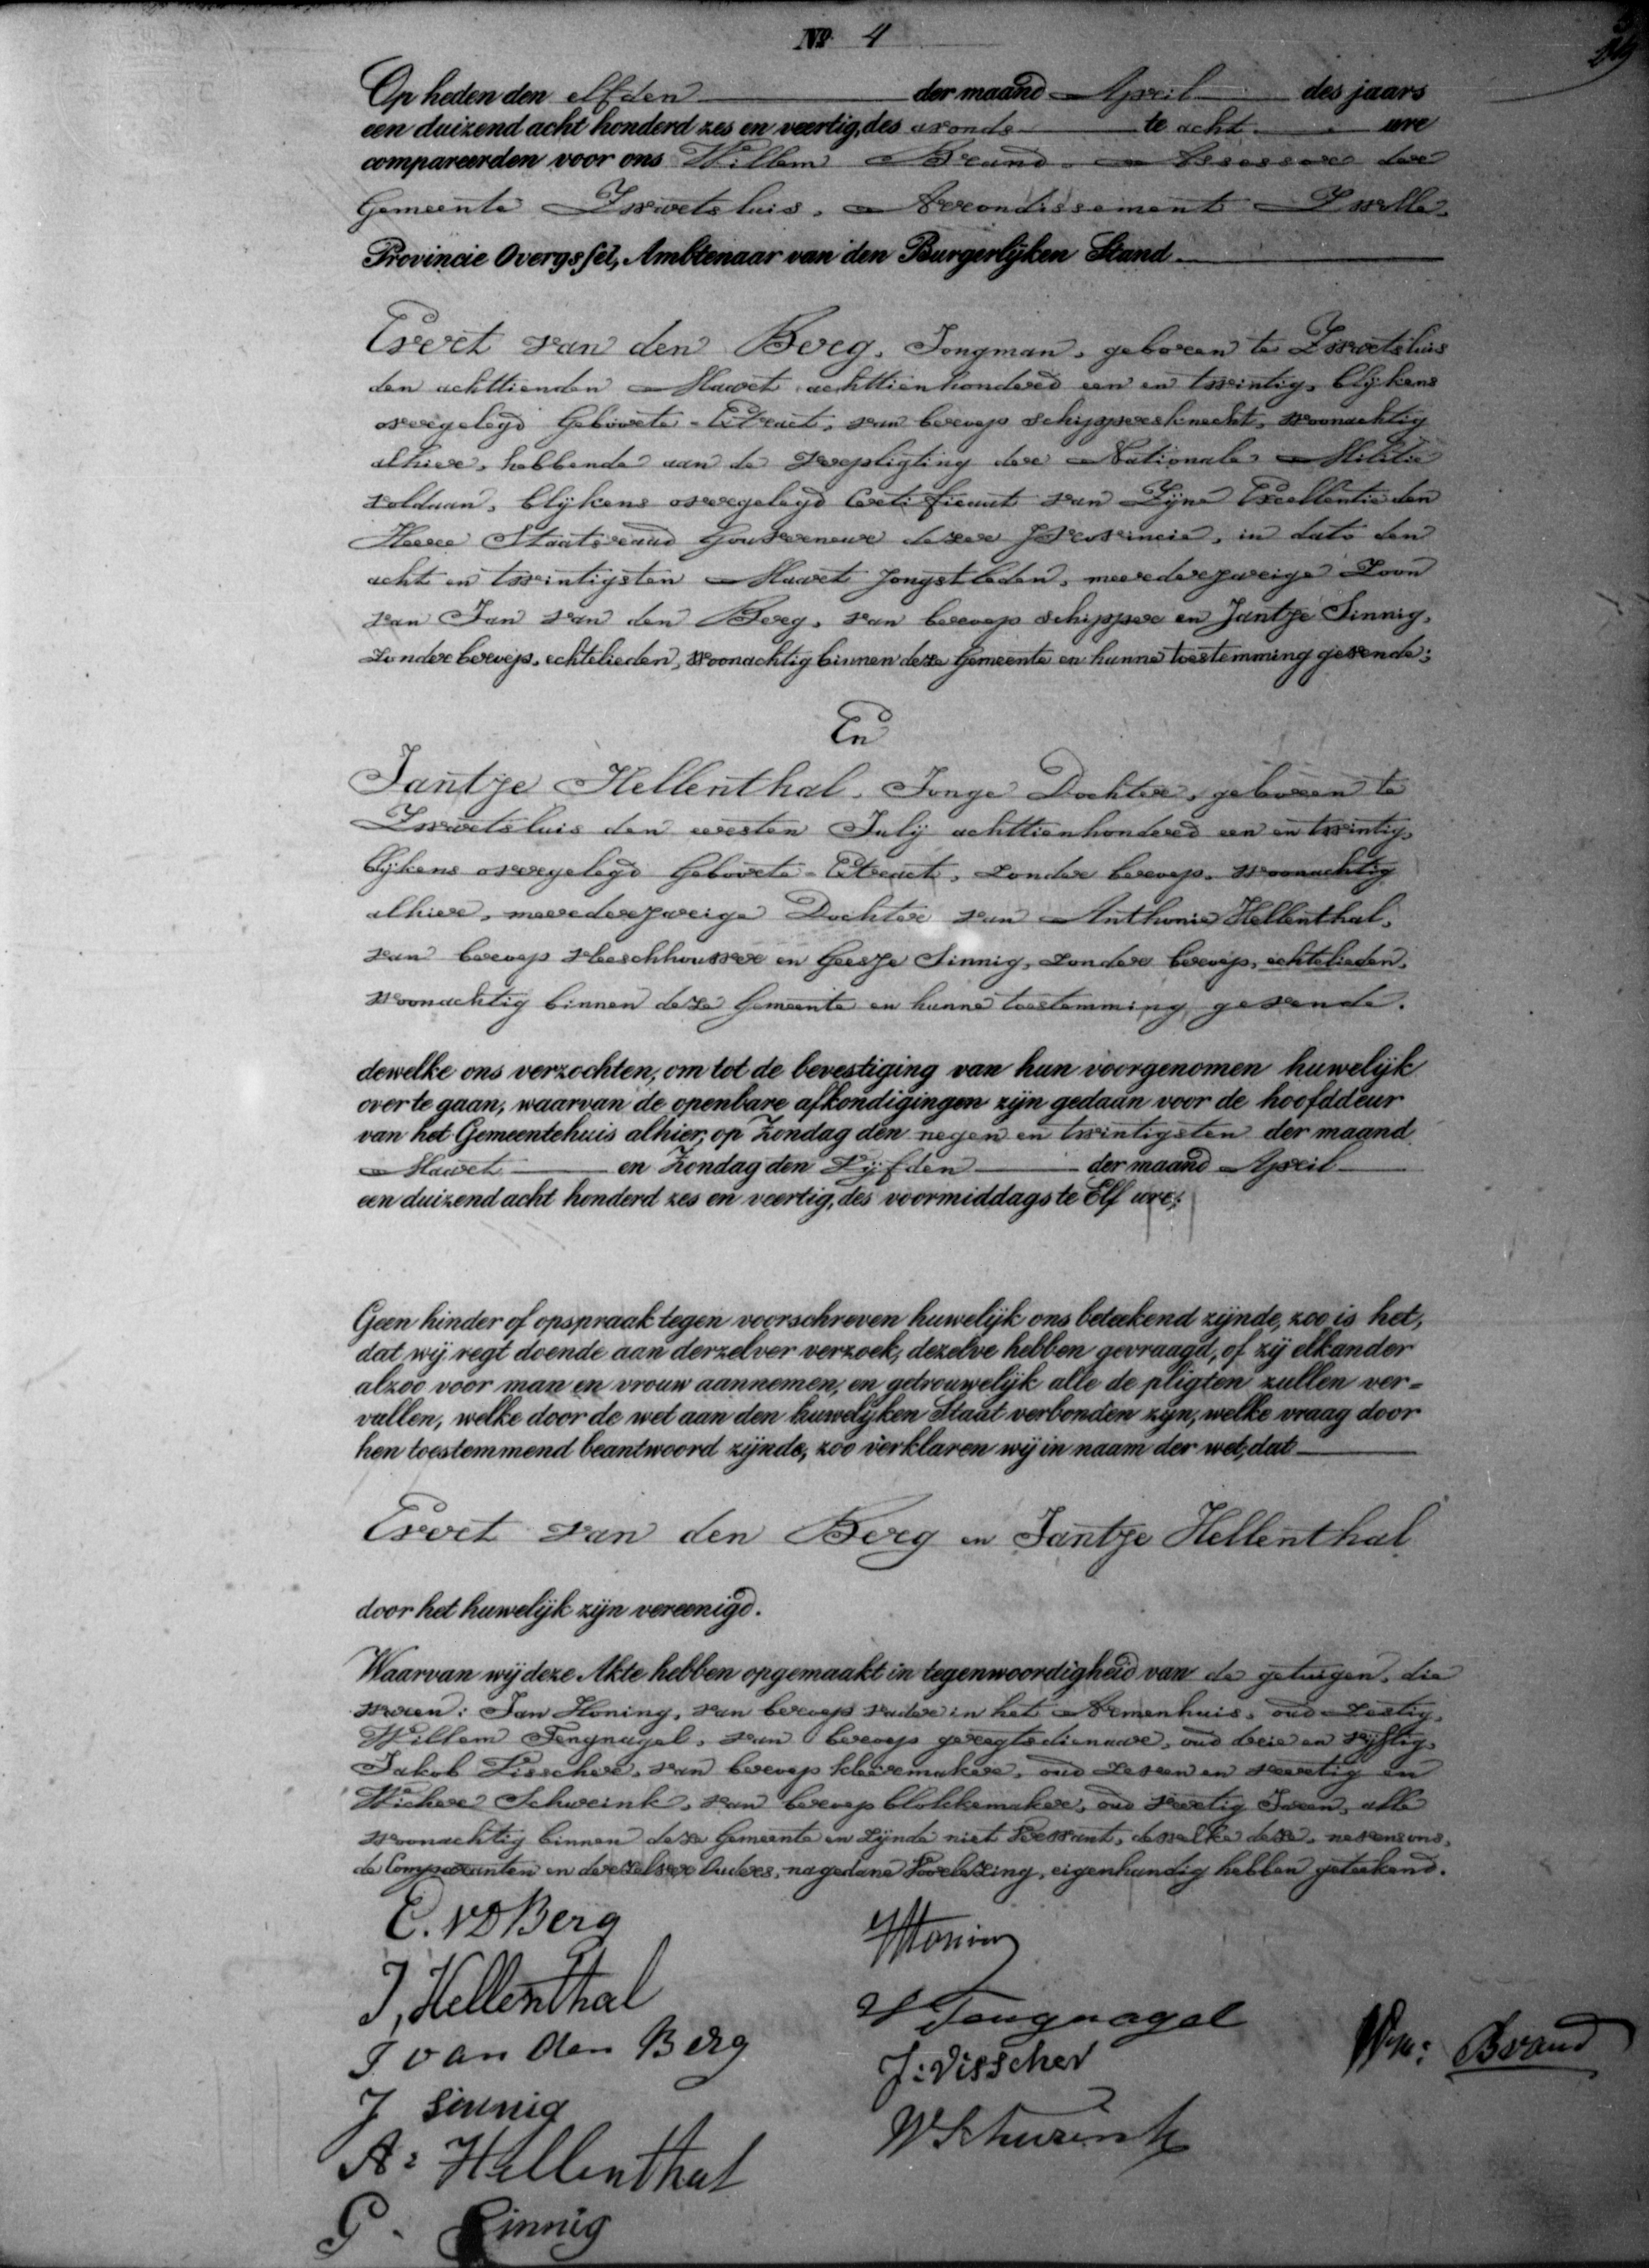 No. 4
Op heden den elfden der maand April des jaars
een duizend acht honderd zes en veertig, des avonds te acht ure
compareerden voor ons Willem Brand Assessor der
Gemeente Zwartsluis, Arrondissement Zwolle,
Provincie Overyssel, Ambtenaar van den Burgerlijken Stand
Evert van den Berg, Jongman, geboren te Zwartsluis
den achttienden Maart achttienhonderd een en twintig, blijkens
overgelegd Geboorte-Extract, van beroep schippersknecht, woonachtig
alhier, hebbende aan de verpligting der Nationale Militie
voldaan, blijkens overgelegd Certificaat van Zijne Excellentie den
Heere Staatsraad Gouverneur dezer Provincie, in dato den
acht en twintigsten Maart jongstleden, meerderjarige Zoon
van Jan van den Berg, van beroep schipper en Jantje Sinnig,
zonder beroep, echtelieden, woonachtig binnen deze Gemeente en hunne toestemming gevende;
En
Jantje Hellenthal, Jonge Dochter, geboren te
Zwartsluis den eersten July achttienhonderd een en twintig,
blijkens overgelegd Geboorte-Extract, zonder beroep, woonachtig
alhier, meerderjarige Dochter van Anthonie Hellenthal,
van beroep vleeschhouwer en Geesje Sinnig, zonder beroep, echtelieden,
woonachtig binnen deze Gemeente en hunne toestemming gevende.
dewelke ons verzochten, om tot de bevestiging van hun voorgenomen huwelijk
over te gaan, waarvan de openbare afkondigingen zijn gedaan voor de hoofddeur
van het Gemeentehuis alhier, op Zondag den negen en twintigsten der maand
Maart en Zondag den Vijfden der maand April
een duizend acht honderd zes en veertig, des voormiddags te Elf ure;
Geen hinder of opspraak tegen voorschreven huwelijk ons beteekend zijnde, zoo is het,
dat wij regt doende aan derzelver verzoek, dezelve hebben gevraagd, of zij elkander
alzoo voor man en vrouw aannemen, en getrouwelijk alle de pligten zullen ver-
vullen, welke door de wet aan den huwelijken Staat verbonden zijn, welke vraag door
hen toestemmend beantwoord zijnde, zoo verklaren wij in naam der wet, dat
Evert van den Berg en Jantje Hellenthal
door het huwelijk zijn vereenigd.
Waarvan wij deze Akte hebben opgemaakt in tegenwoordigheid van de getuigen, die
waren: Jan Honing, van beroep vader in het Armenhuis, oud zestig,
Willem Tengnagel, van beroep geregtsdienaar, oud drie en vijftig,
Jakob Visscher, van beroep kleermaker, oud zeven en veertig en
Wicher Schureink, van beroep blokkemaker, oud veertig Jaren, alle
woonachtig binnen deze Gemeente en zijnde niet Verwant, dewelke deze, nevens ons,
de Comparanten en derzelver Ouders, na gedane Voorlezing, eigenhandig hebben geteekend.
E. VD Berg
J Honing
J, Hellenthal
W Tengnagel
J van den Berg
Wm: Brand
J: Visscher
J Sinnig
W Schurink
A: Hellenthal
G. Sinnig